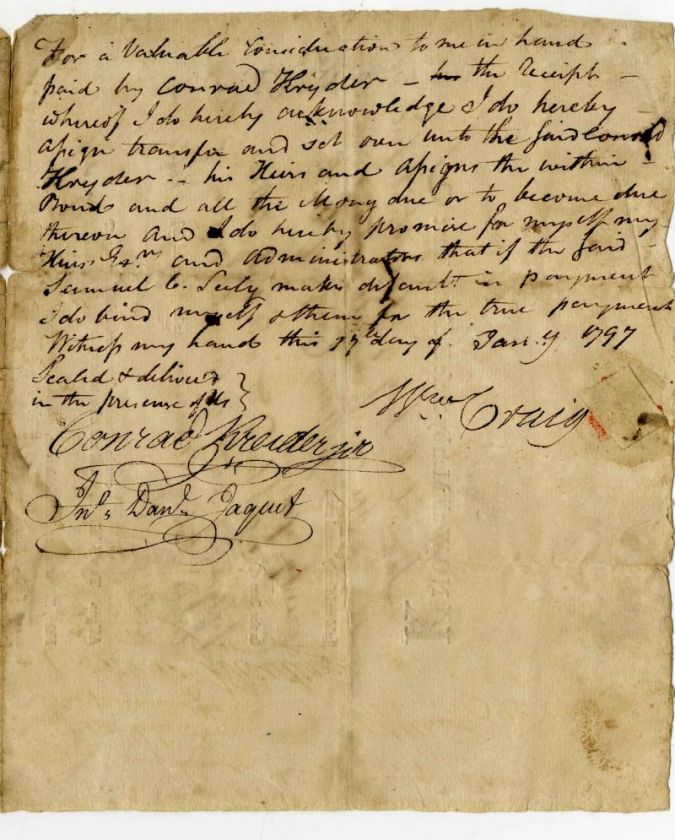 For a Valuable Consideration to me in hand
paid by Conrad Kryder – the Receipt –
whereof I do hereby acknowledge I do hereby –
Assign transfer and set over unto the said Conrad
Kryder – his Heirs and Assigns the within –
Bond and all the Money due or to become due
thereon And I do hereby promise for myself my
Heirs Exrs and Administrators that if the said –
Samuel C. Seely makes default in payment
I do bind myself & them for the true payment
Witness my hand this 17th day of Jany 1797
Sealed & deliverd
in the presence of Us
Wm Craig
Conrad Kreider jur
Jno Danl Jaquet